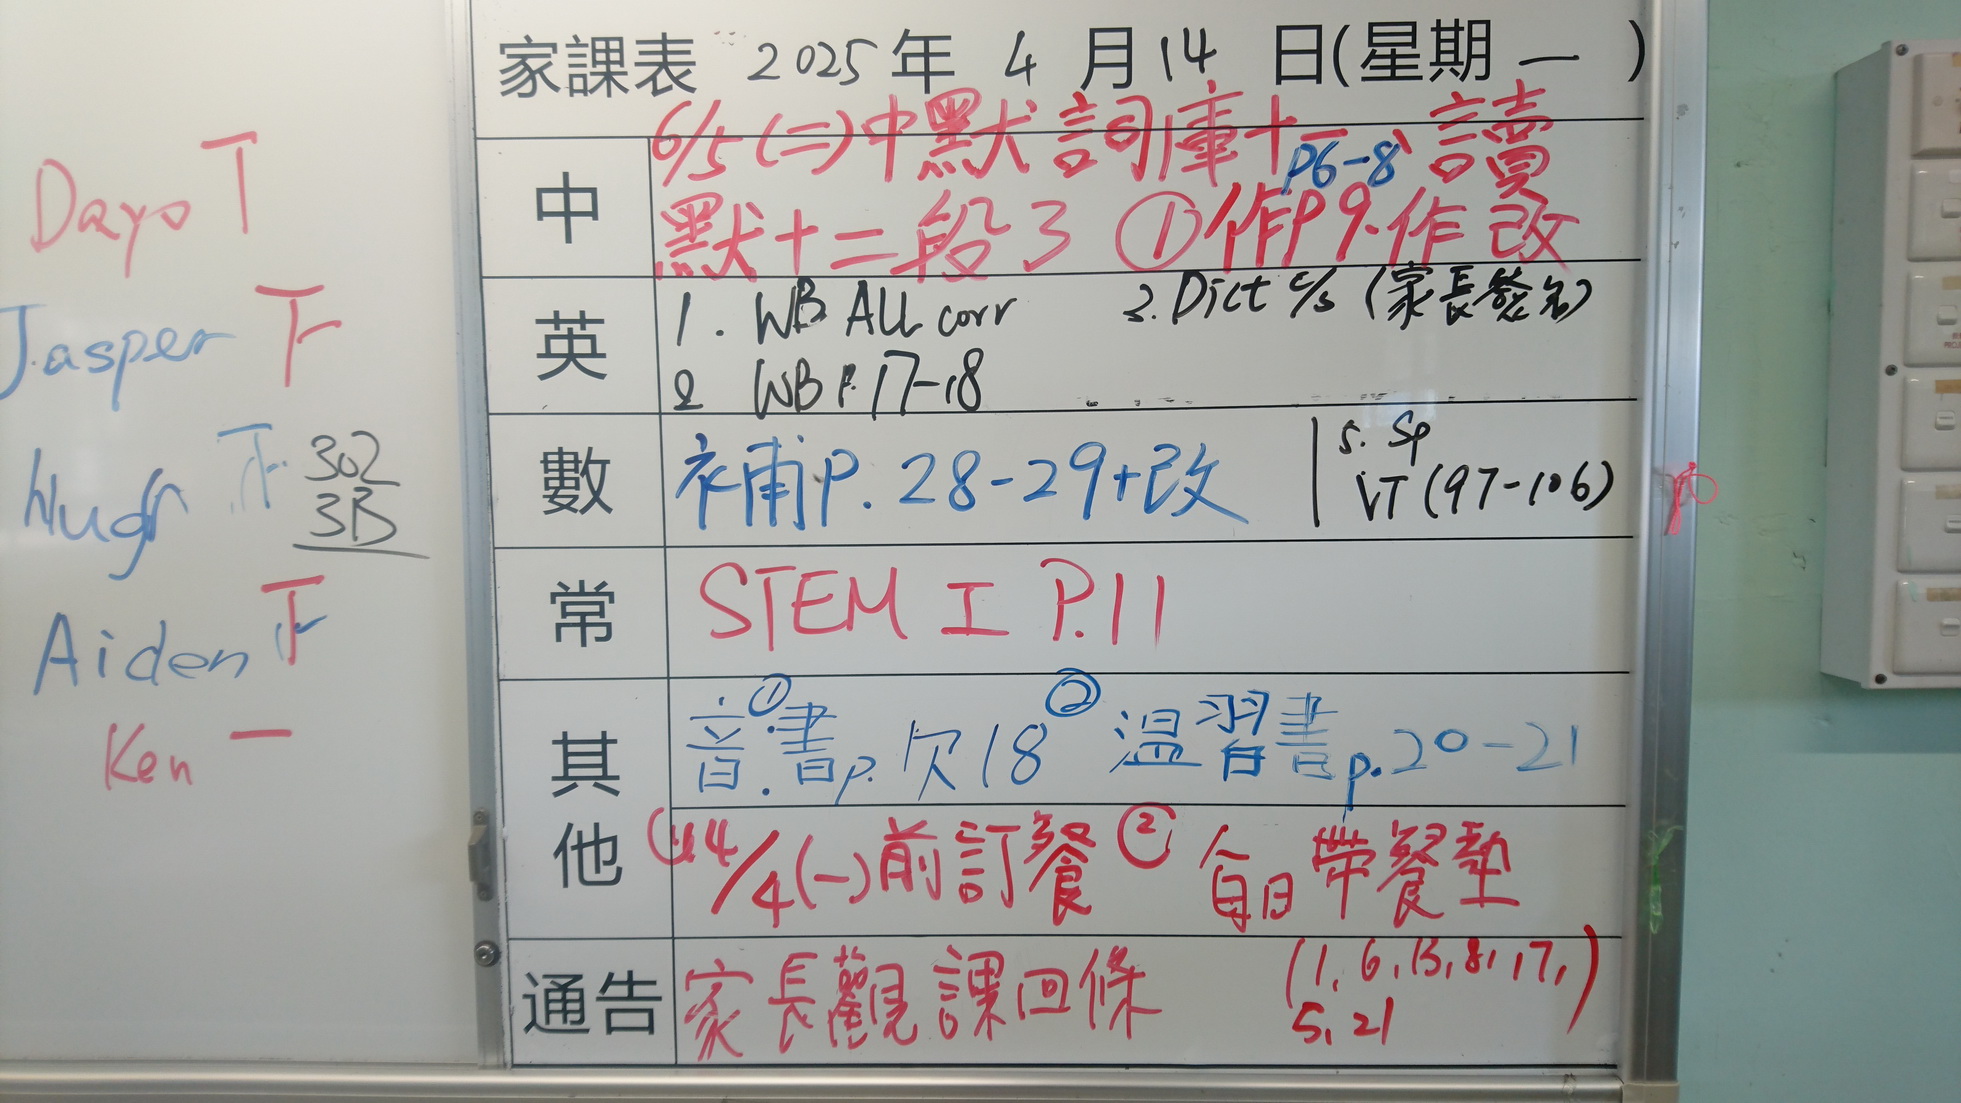 家課表 2025年 4月14日(星期一)
中
6/5(二)中默詞庫十 P6-8 讀
默十二段3 ①作P9.作改
英
1. WB ALL corr
3. Dict c/s (家長簽名)
2 WB P.17-18
數
補P.28-29+改
5. Sp
VT (97-106)
常
STEM工 P.11
其他
①音.書p.欠18 ②溫習書p.20-21
14/4(一)前訂餐 ②每日帶餐墊
通告
家長觀課回條
(1,6,13,8,17,
5,21)
Dayo
Jasper
Hugh
302
3B
Aiden
Ken 一